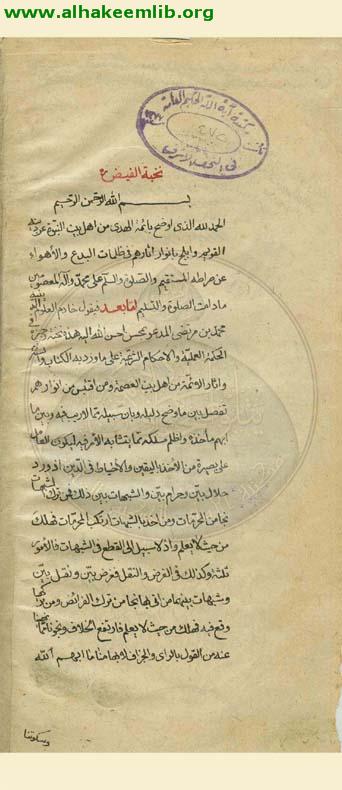 www.alhakeemlib.org
مكتبة آية الله الحكيم العامة
في النجف الأشرف
نخبة الفيض
بسم الله الرحمن الرحيم
الحمد لله الذى اوضح بائمة الهدى من اهل بيت النبوة عن دينه
القويم وابلج بانوار اثارهم فى ظلمات البدع والأهواء
عن صراطه المستقيم والصلوة والسلم على محمد وآله المعصومين
مادامت الصلوة والتسليم اما بعد فيقول خادم العلوم الدينية
محمد بن مرتضى المدعو بمحسن احسن الله اليه هذه نخبة
الحكمة العملية والاحكام الشرعية على ما ورد به الكتاب والسنة
واثار الائمة من اهل بيت العصمة ومن اقتبس من انوارهم
تفصل بين ما وضح دليله وبان سبيله مما لا ريب فيه وبين ما
ابهم مأخذه واظلم مسلكه مما يتشابه الامر فيه ليكون العامل
على بصيرة من الأخذ باليقين والاحتياط فى الدين اذ ورد
حلال بين وحرام بين والشبهات بين ذلك فمن ترك الشبهات
نجا من المحرمات ومن اخذ بالشبهات ارتكب المحرمات وهلك
من حيث لا يعلم واذ لا سبيل الى القطع فى الشبهات فالامور
ثلثة وكذلك فى الفرض والنفل ففرض بين ونفل بين
وشبهات بينهما من اتى بها نجا من ترك الفرائض ومن تركها
وقع فيه فهلك من حيث لا يعلم فارتفع الخلاف ونجونا
عنده من القول بالراى والجزاف لابهامنا ما ابهم الله
وسكوتنا